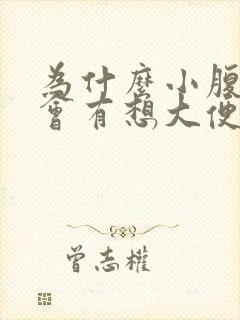 為什麼小腹
會有想大便
曾志權